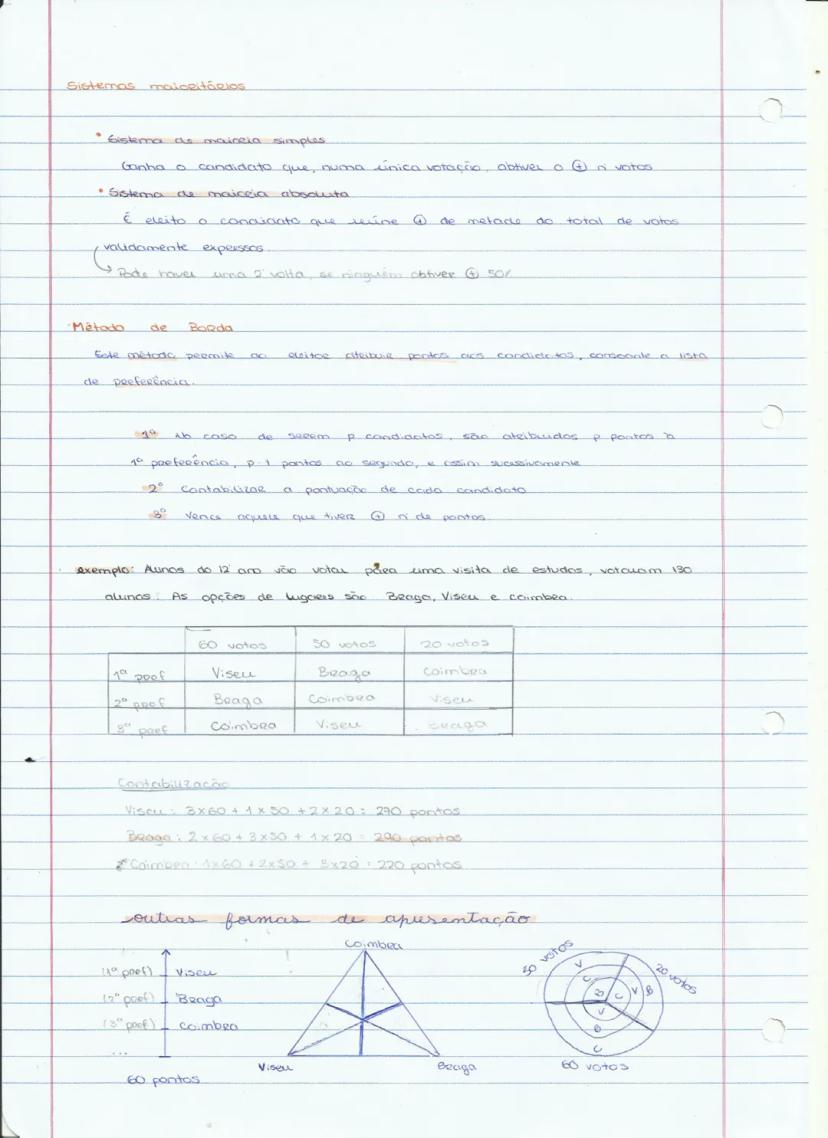 Sistemas maioritários
• Sistema de maioria simples
Ganha o candidato que, numa única votação, obtiver o ⊕ nº votos
• Sistema de maioria absoluta
É eleito o candidato que reúne ⊕ de metade do total de votos
validamente expressos.
↳ Pode haver uma 2ª volta, se ninguém obtiver ⊕ 50%
Método de Borda
Este método permite ao eleitor atribuir pontos aos candidatos, consoante a lista
de preferência.
1º No caso de serem p candidatos, são atribuidos p pontos à
1ª preferência, p-1 pontos ao segundo, e assim sucessivamente
2º Contabilizar a pontuação de cada candidato
3º Vence aquele que tiver ⊕ nº de pontos.
exemplo: Alunos do 12º ano vão votar para uma visita de estudos, votaram 130
alunos. As opções de lugares são Braga, Viseu e Coimbra.
60 votos 50 votos 20 votos
1ª pref Viseu Braga Coimbra
2ª pref Braga Coimbra Viseu
3ª pref Coimbra Viseu Braga
Contabilização
Viseu: 3×60 + 1×50 + 2×20 = 270 pontos
Braga: 2×60 + 3×50 + 1×20 = 290 pontos
Coimbra: 1×60 + 2×50 + 3×20 = 220 pontos
outras formas de apresentação
(1ª pref) Viseu
(2ª pref) Braga
(3ª pref) Coimbra
...
60 pontos
Coimbra
Viseu Braga
50 votos
20 votos
V
C
B
C V B
V
B
C
60 votos